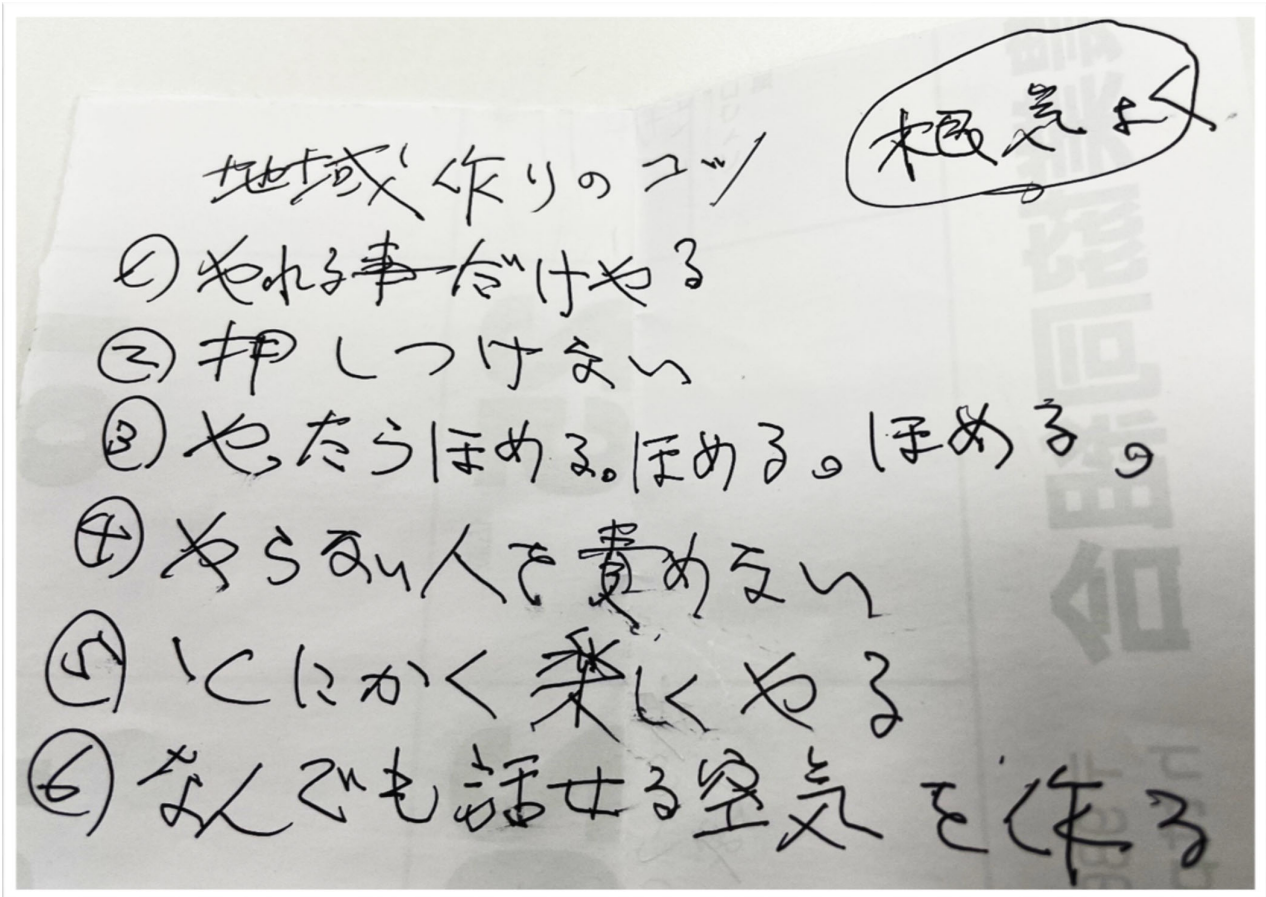 根気よく
地域作りのコツ
① やれる事だけやる
② 押しつけない
③ やったらほめる。ほめる。ほめる。
④ やらない人を責めない
⑤ とにかく楽しくやる
⑥ なんでも話せる空気を作る